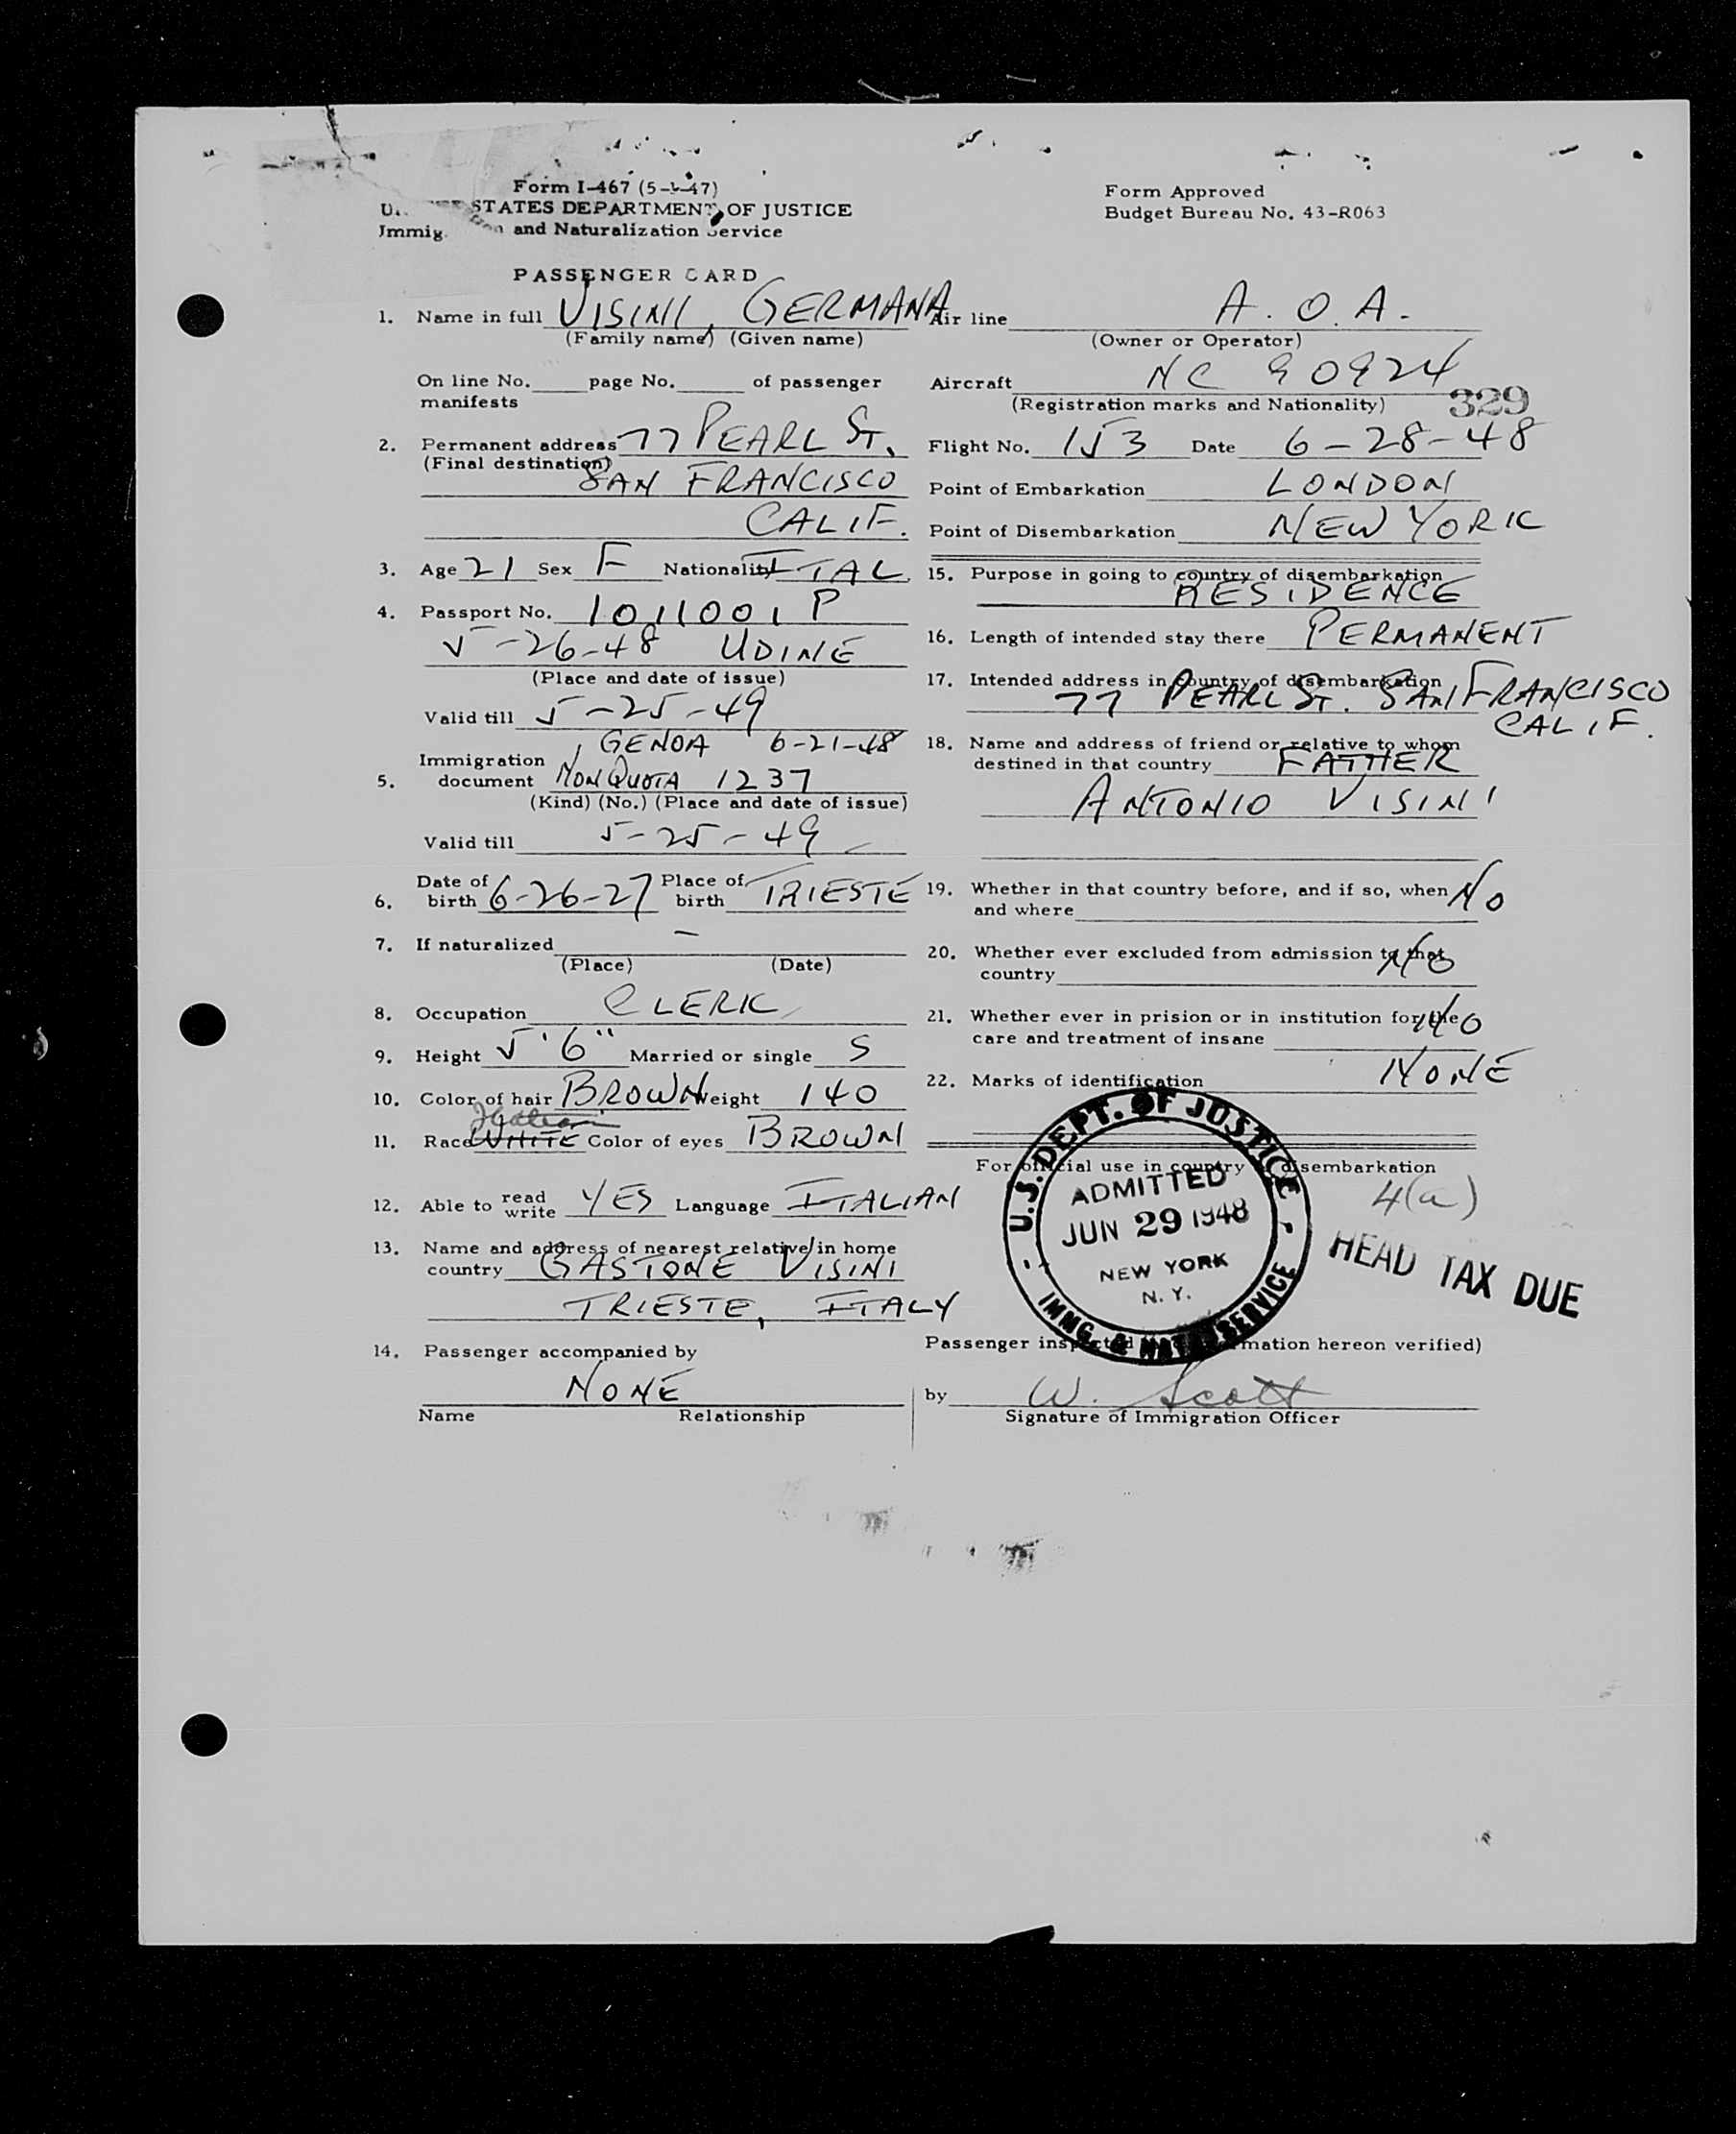 Form I-467 (5-1-47)
STATES DEPARTMENT OF JUSTICE
and Naturalization Service
PASSENGER CARD
1. Name in full VISINI, GERMANA
(Family name) (Given name)
On line No. page No. of passenger
manifests
2. Permanent address 77 PEARL ST.
(Final destination)
SAN FRANCISCO
CALIF.
3. Age 21 Sex F Nationality ITAL.
4. Passport No. 1011001 P
5-26-48 UDINE
(Place and date of issue)
Valid till 5-25-49
GENOA 6-21-48
5. Immigration
document NON QUOTA 1237
(Kind) (No.) (Place and date of issue)
Valid till 5-25-49
6. Date of birth 6-26-27 Place of birth TRIESTE
7. If naturalized -
(Place) (Date)
8. Occupation CLERK
9. Height 5'6" Married or single S
10. Color of hair BROWN Weight 140
Italian
11. Race WHITE Color of eyes BROWN
12. Able to read write YES Language ITALIAN
13. Name and address of nearest relative in home
country GASTONE VISINI
TRIESTE, ITALY
14. Passenger accompanied by
NONE
Name Relationship
Form Approved
Budget Bureau No. 43-R063
Air line A.O.A.
(Owner or Operator)
Aircraft NC 90924
(Registration marks and Nationality)
329
Flight No. 153 Date 6-28-48
Point of Embarkation LONDON
Point of Disembarkation NEW YORK
15. Purpose in going to country of disembarkation
RESIDENCE
16. Length of intended stay there PERMANENT
17. Intended address in country of disembarkation
77 PEARL ST. SAN FRANCISCO
CALIF.
18. Name and address of friend or relative to whom
destined in that country FATHER
ANTONIO VISINI
19. Whether in that country before, and if so, when NO
and where
20. Whether ever excluded from admission to that NO
country
21. Whether ever in prision or in institution for the NO
care and treatment of insane
22. Marks of identification NONE
For official use in country of disembarkation
4(a)
U.S. DEPT. OF JUSTICE
ADMITTED
JUN 29 1948
NEW YORK
N.Y.
IMMG. & NAT. SERVICE
HEAD TAX DUE
Passenger inspected mation hereon verified)
by W. Scott
Signature of Immigration Officer